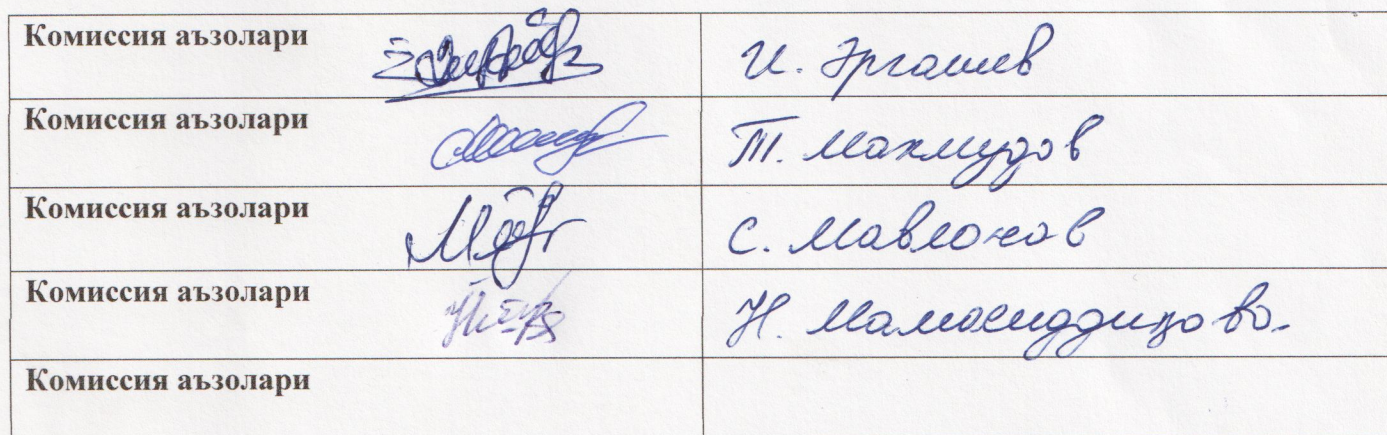 Комиссия аъзолари И. Эргашев
Комиссия аъзолари Т. Махмудов
Комиссия аъзолари С. Мавлонов
Комиссия аъзолари Н. Мамасиддиқова
Комиссия аъзолари